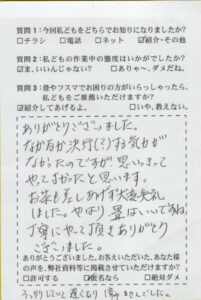 質問1：今回私どもをどちらでお知りになりましたか?
□チラシ □電話 □ネット ☑紹介・その他
質問2：私どもの作業中の態度はいかがでしたか?
☑ま、いいんじゃない? □ありゃ～、ダメだね。
質問3：畳やフスマでお困りの方がいらっしゃったら、
私どもをご推薦いただけますか?
☑紹介してあげるよ。 □いや、教えない。
ありがとうございました。
なかなか決行(?)する気力が
なかったのですが思いきって
やってよかったと思います。
お茶も差しあげず大変失礼
しました。やはり、畳はいいですね。
丁寧にやって頂きありがとう
ございました。
ありがとうございました。お答えいただいた、あなた様
の声を、弊社資料等に掲載させていただけますか?
□許可する ☑匿名なら □絶対ダメ
うっかりしていて遅くなり すみませんでした。